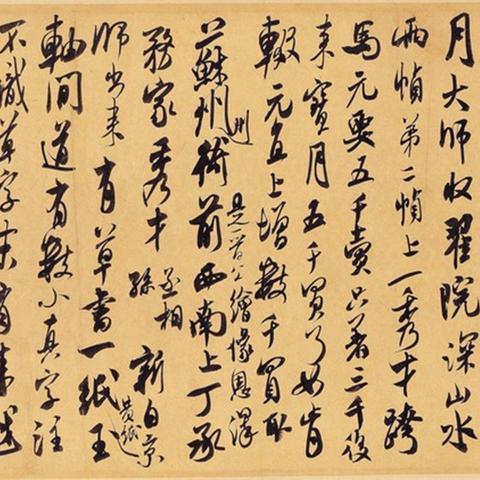 月大師收翟院深山水
兩幀第二幀上一秀才跨
馬元要五千賣只著三千後
来寶月五千買了如肯
輟元直上增數千買取
蘇州州衙前西南上丁承
是晉公繪像恩澤
務家秀才丞相孫新自京
師出来有草書一紙黃紙玉
軸間道有數小真字注
不識草字末有